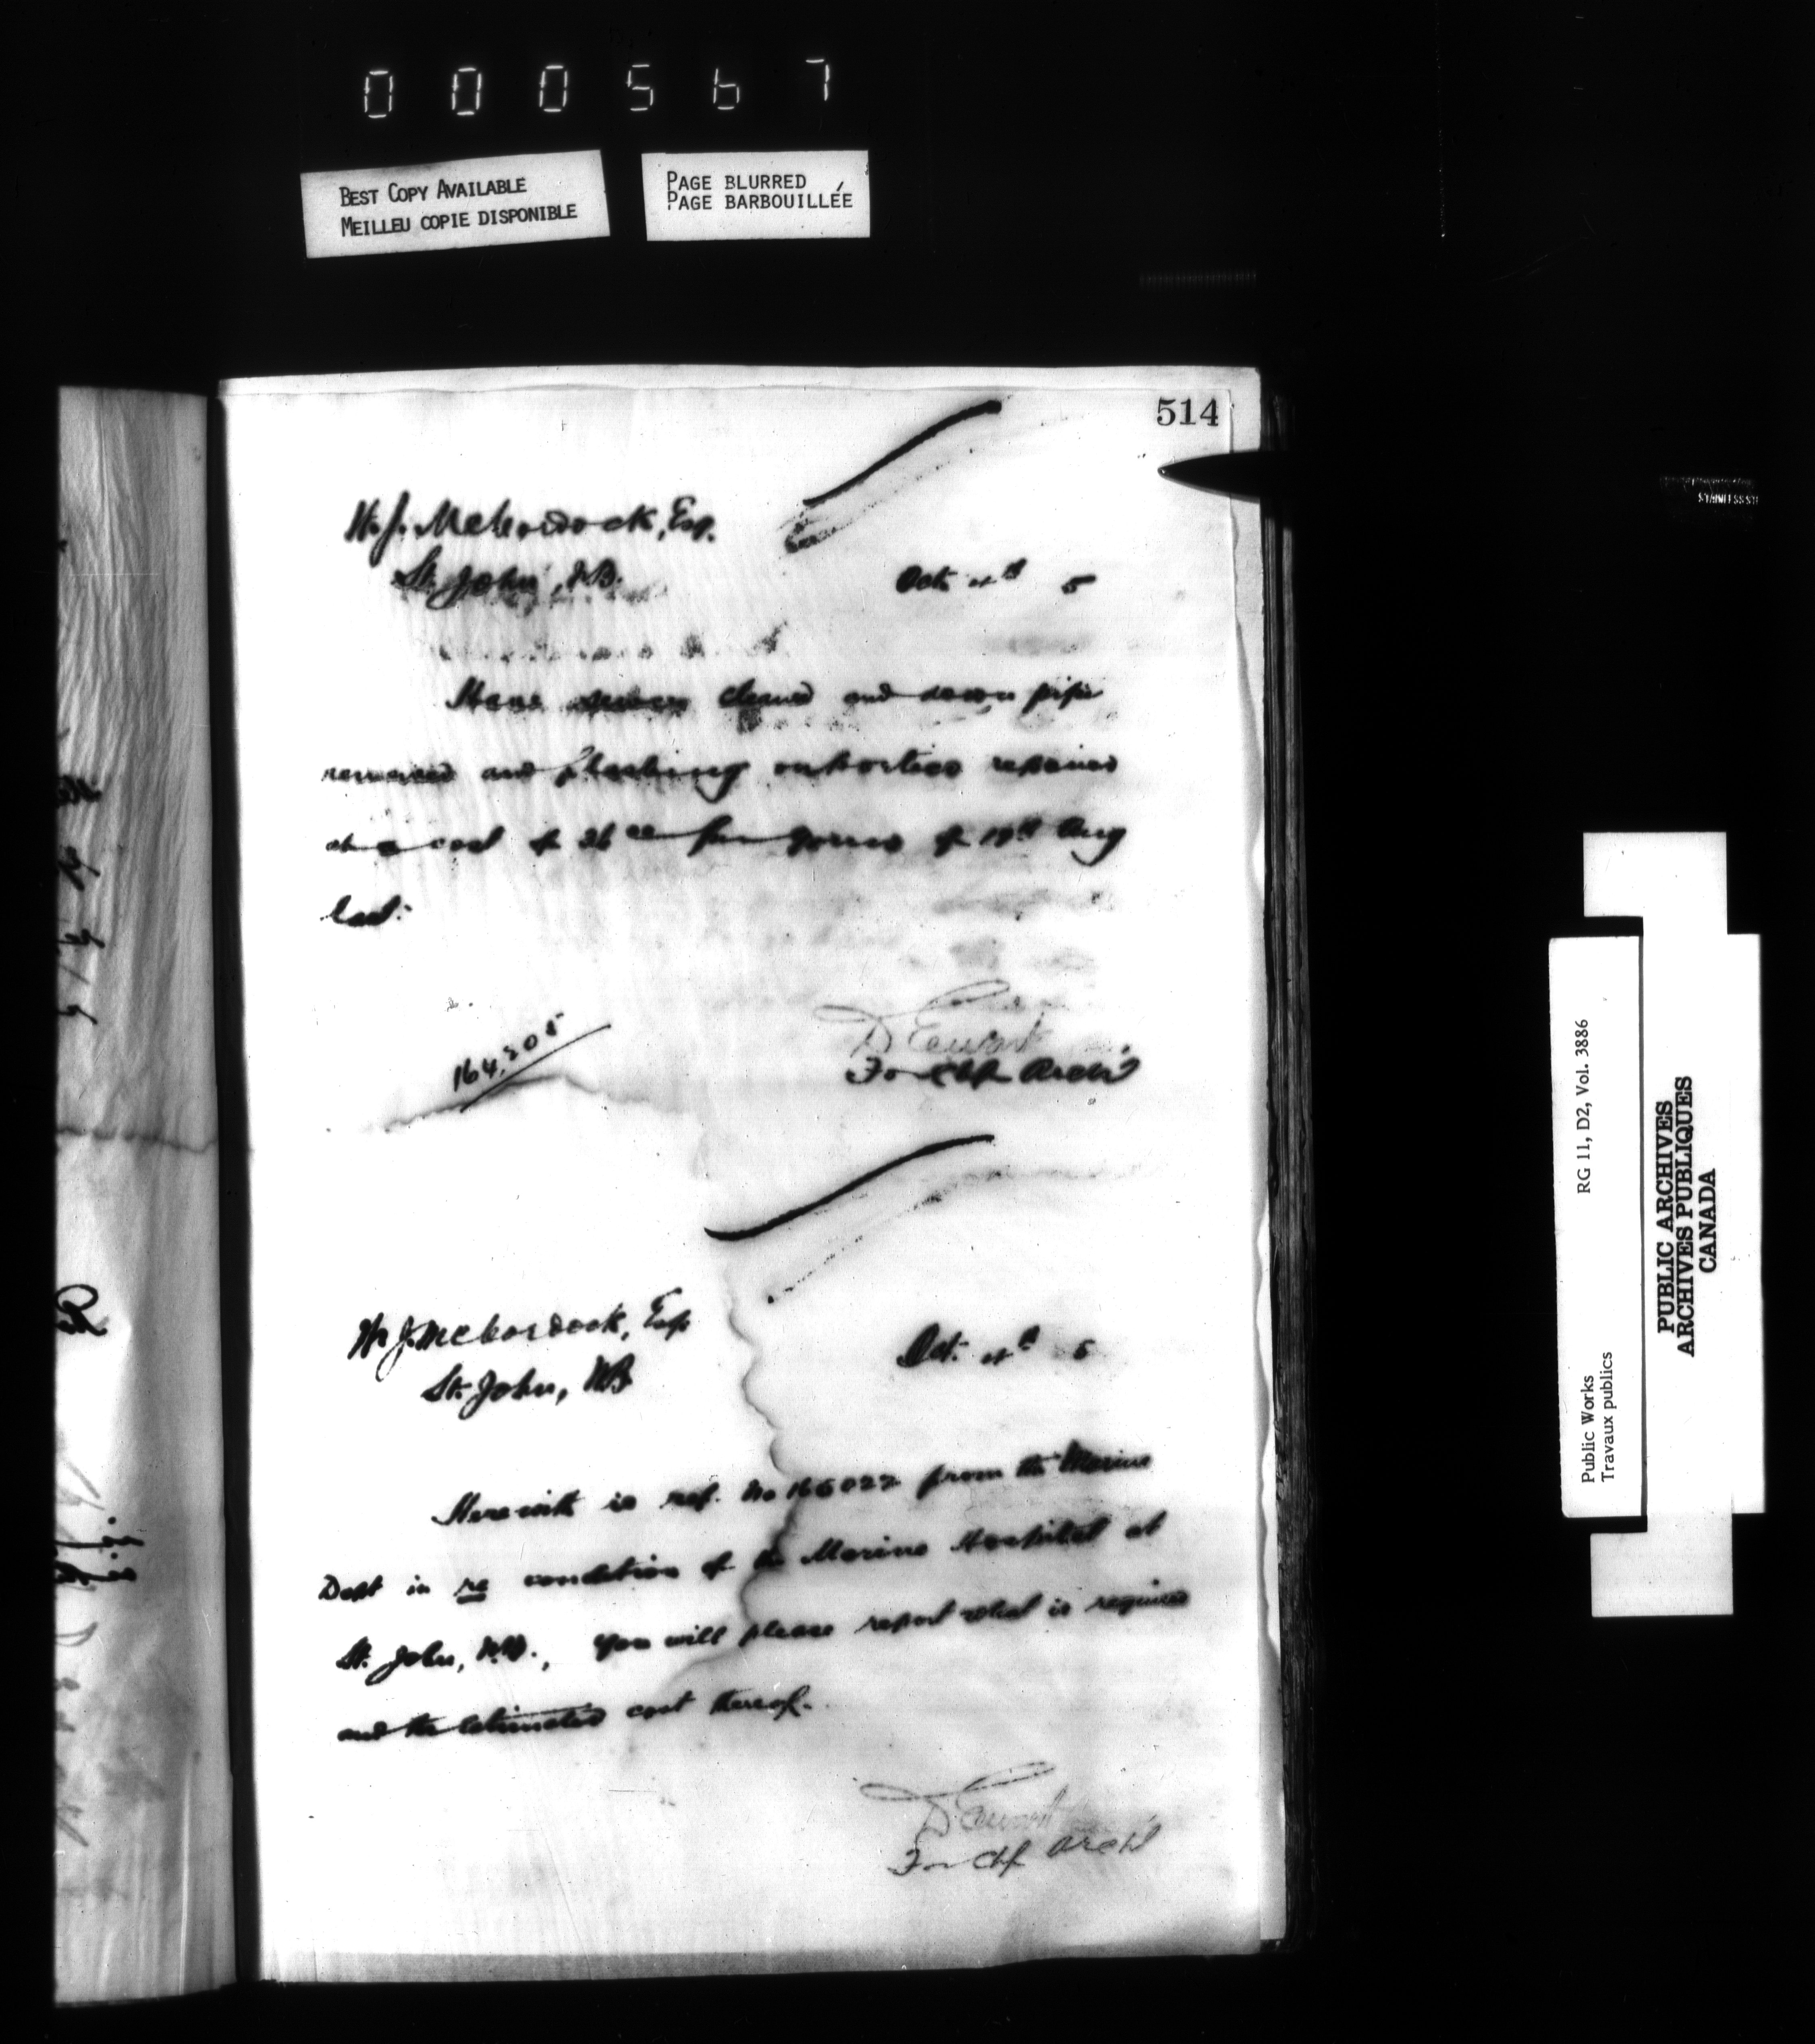 000567
BEST COPY AVAILABLE
MEILLEU COPIE DISPONIBLE
PAGE BLURRED
PAGE BARBOUILLÉE
514
St. John, N.B.
Oct. 4th 5
Have sewer cleaned and down pipe
renewed and flashing on portico repaired
at a cost of 26 as per yours of 19th Aug
last.
164,205
D Ewart
For Chf Arch't
St. John, N.B.
Oct. 4th 5
Herewith is ref. No 166022 from the Marine
Dept in re condition of the Marine Hospital at
St. John, N.B., You will please report what is required
and the estimated cost thereof.
D Ewart
For Chf Arch't
Public Works
Travaux publics
RG 11, D2, Vol. 3886
PUBLIC ARCHIVES
ARCHIVES PUBLIQUES
CANADA
STAINLESS